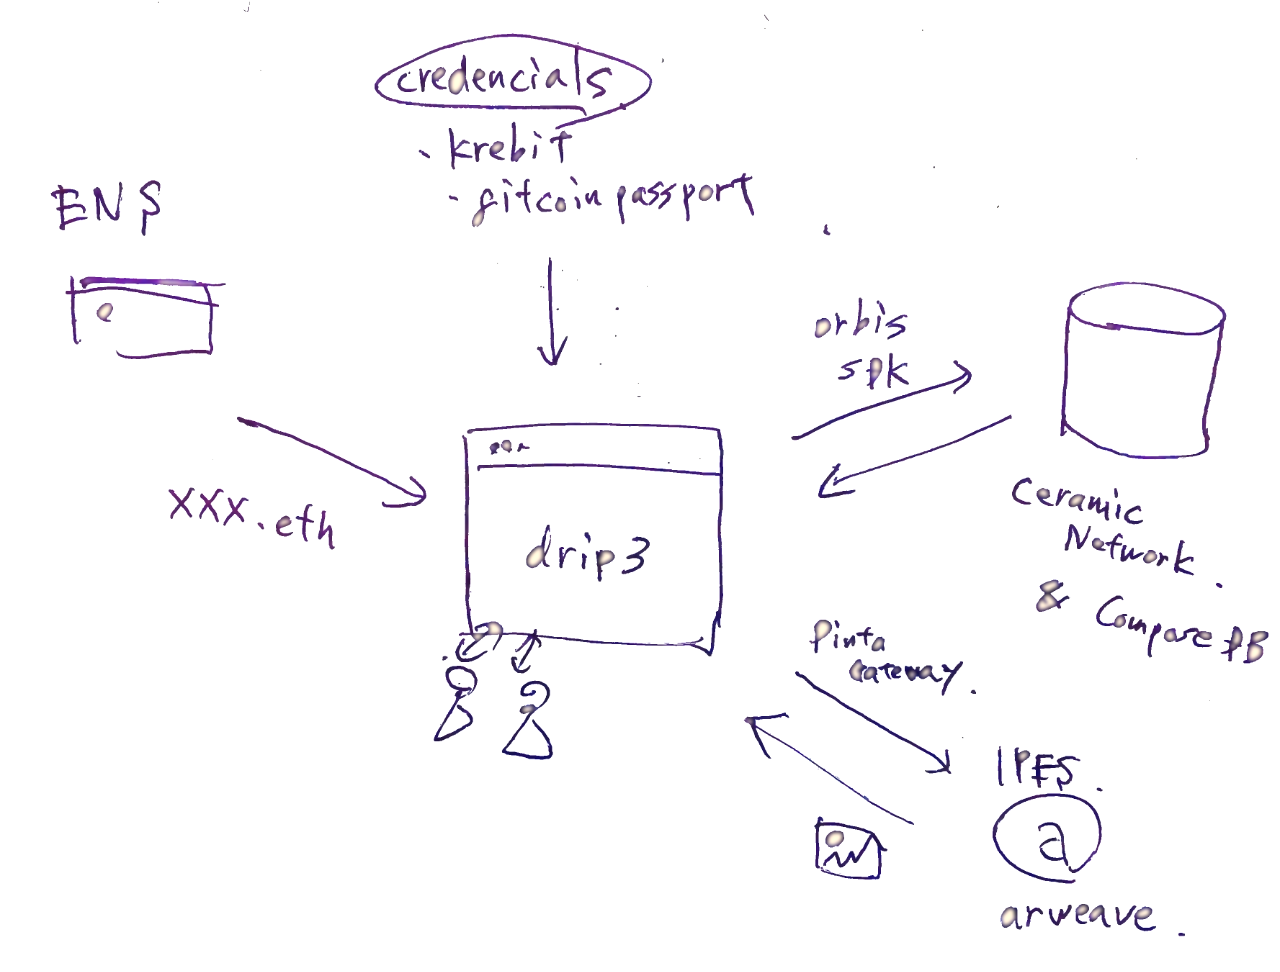 credencials
・krebit
・gitcoin passport
ENS
xxx.eth
orbis
spk
drip3
Ceramic
Network.
& Compose DB
Pinta
Gateway.
IPFS.
a
arweave.